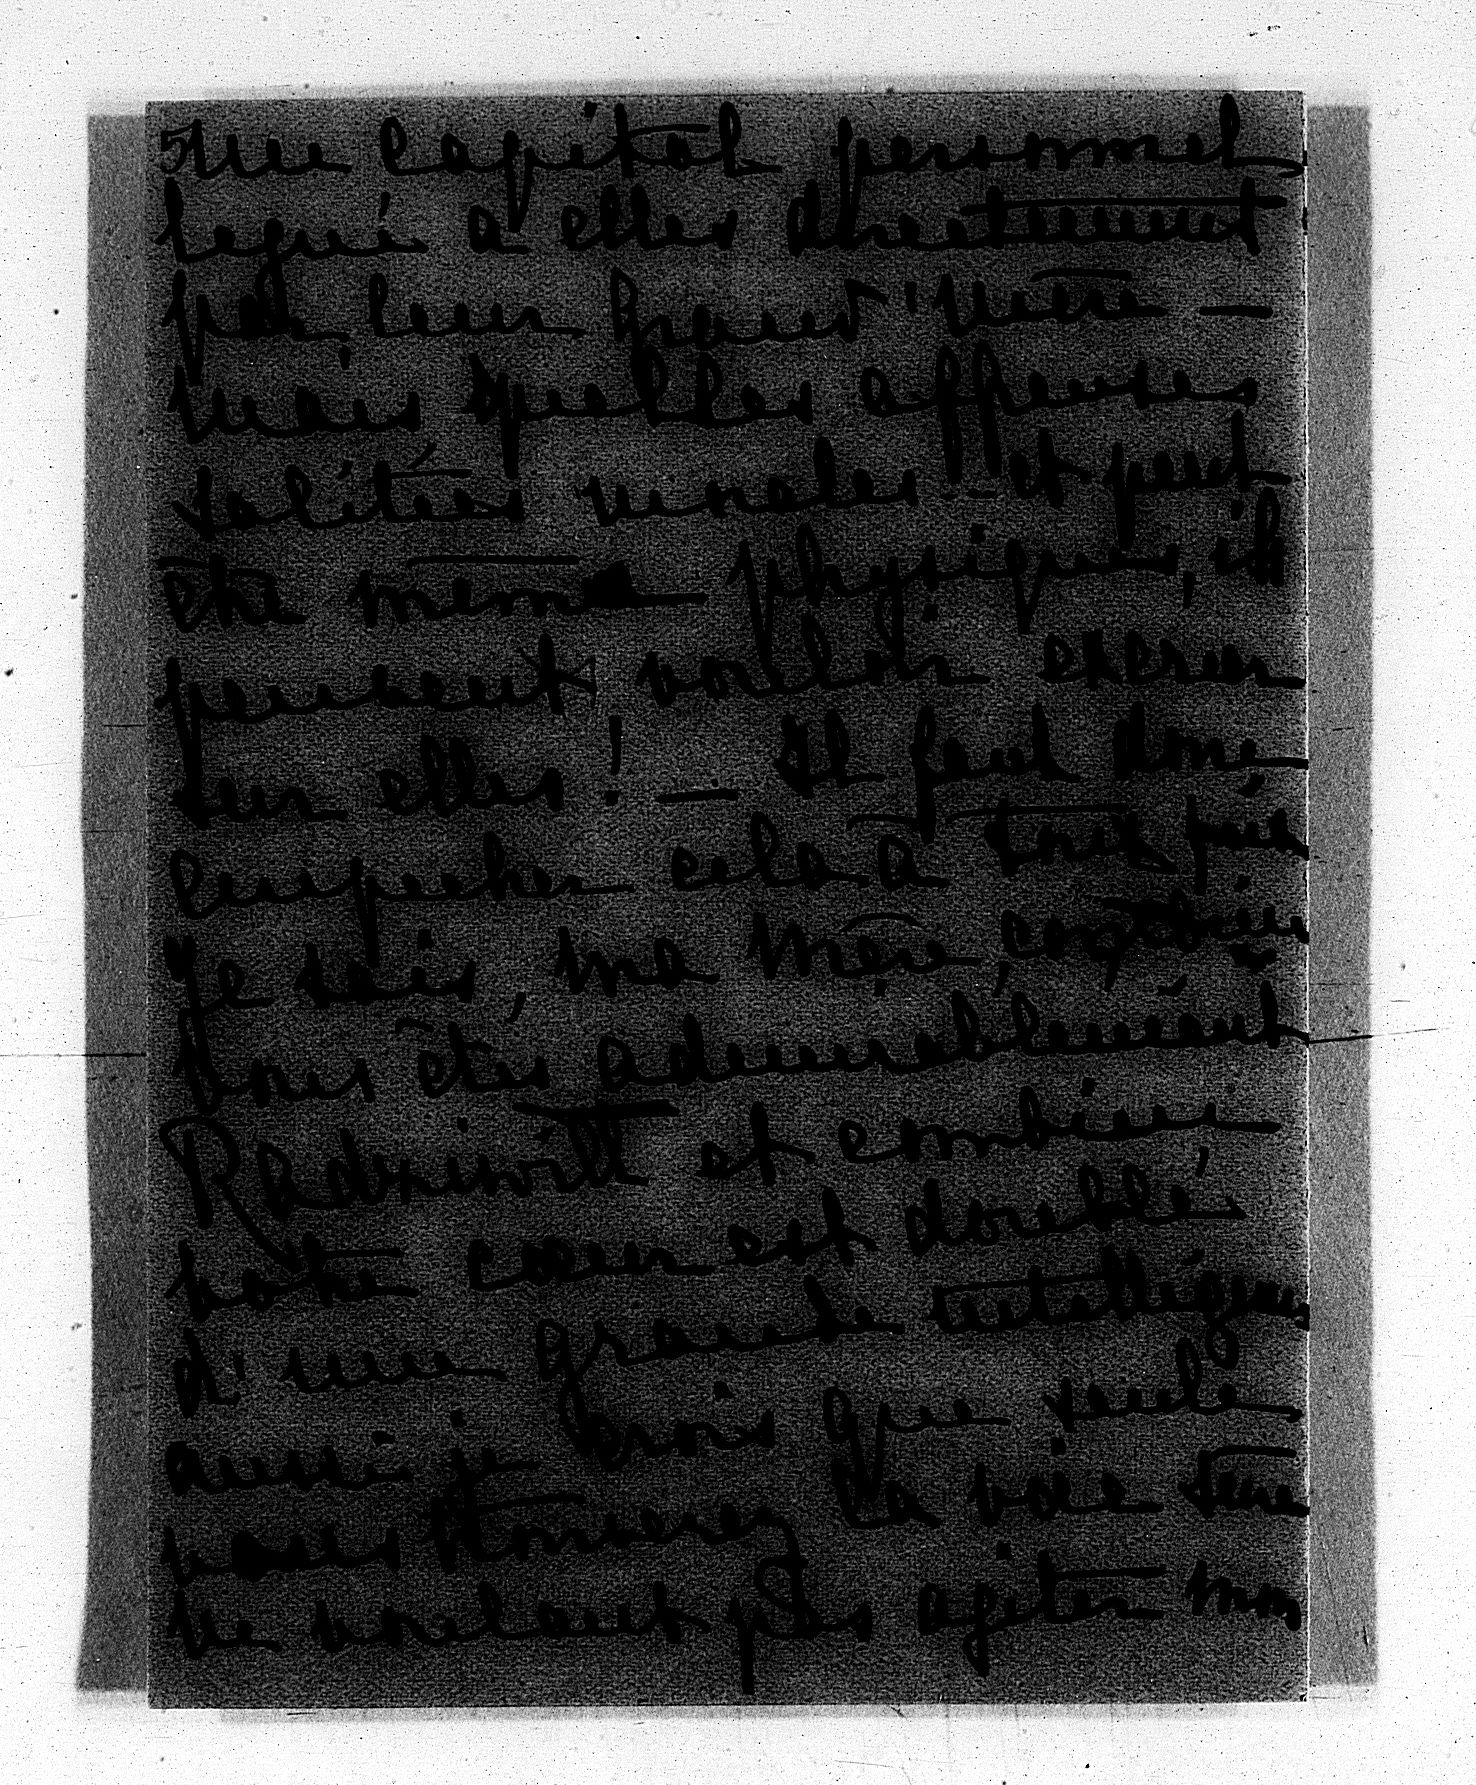 5 Une Capital personnel
legué à elles directement
par leur Grand'mère —
mais quelles affreuses
morales!.. et peut
être meme physiques, ils
peuvent vouloir exercer
sur elles! — Il faut donc
empecher cela à tous prix
Je sais, ma Mère, combien
Vous êtes admirablement
Radziwill et combien
votre cœur est doublé
d'une grande intelligence
aussi je crois que seule
vous trouverez la voie sure
ne voulant pas agiter mon